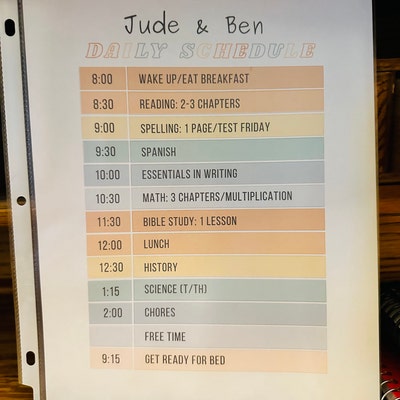 Jude & Ben
DAILY SCHEDULE
8:00 WAKE UP/EAT BREAKFAST
8:30 READING: 2-3 CHAPTERS
9:00 SPELLING: 1 PAGE/TEST FRIDAY
9:30 SPANISH
10:00 ESSENTIALS IN WRITING
10:30 MATH: 3 CHAPTERS/MULTIPLICATION
11:30 BIBLE STUDY: 1 LESSON
12:00 LUNCH
12:30 HISTORY
1:15 SCIENCE (T/TH)
2:00 CHORES
FREE TIME
9:15 GET READY FOR BED